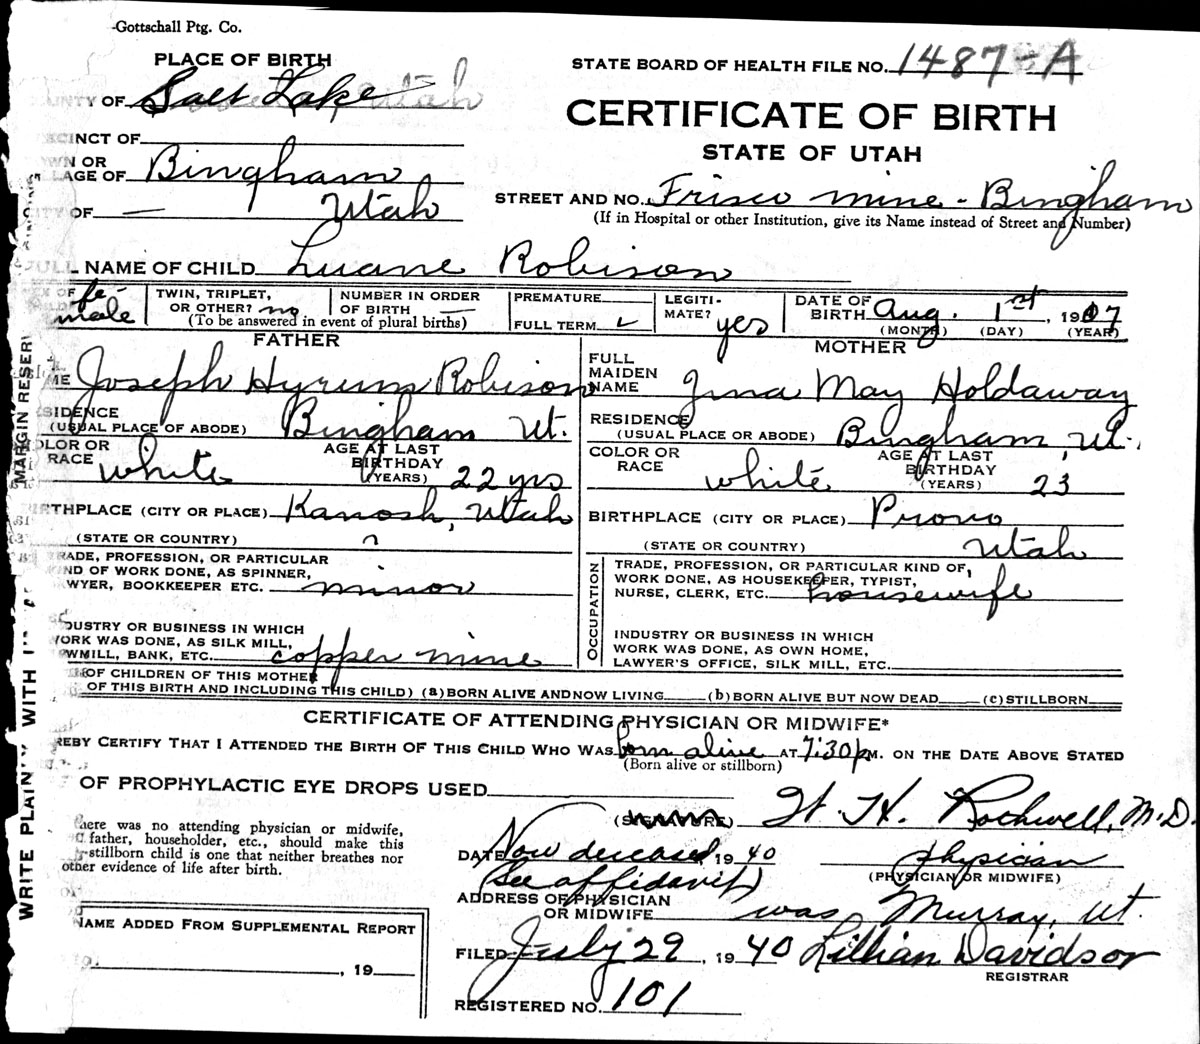 -Gottschall Ptg. Co.
PLACE OF BIRTH
STATE BOARD OF HEALTH FILE NO. 1487-A
UNTY OF Salt Lake Utah
CERTIFICATE OF BIRTH
CINCT OF
STATE OF UTAH
WN OR
LAGE OF Bingham
CITY OF — Utah
STREET AND NO. Frisco mine - Bingham
(If in Hospital or other Institution, give its Name instead of Street and Number)
FULL NAME OF CHILD Luane Robison
SEX OF CHILD fe-male
TWIN, TRIPLET, OR OTHER? no
NUMBER IN ORDER OF BIRTH —
(To be answered in event of plural births)
PREMATURE
FULL TERM ✓
LEGITI-MATE? yes
DATE OF BIRTH Aug. 1st, 1917
(MONTH) (DAY) (YEAR)
FATHER
MOTHER
ME Joseph Hyrum Robison
FULL MAIDEN NAME Zina May Holdaway
SIDENCE (USUAL PLACE OF ABODE) Bingham Ut.
RESIDENCE (USUAL PLACE OR ABODE) Bingham, Ut.
COLOR OR RACE white
AGE AT LAST BIRTHDAY (YEARS) 22 yrs
COLOR OR RACE white
AGE AT LAST BIRTHDAY (YEARS) 23
BIRTHPLACE (CITY OR PLACE) Kanosh, Utah
(STATE OR COUNTRY)
BIRTHPLACE (CITY OR PLACE) Provo
(STATE OR COUNTRY) Utah
RADE, PROFESSION, OR PARTICULAR
IND OF WORK DONE, AS SPINNER,
WYER, BOOKKEEPER ETC. minor
OCCUPATION
TRADE, PROFESSION, OR PARTICULAR KIND OF,
WORK DONE, AS HOUSEKEEPER, TYPIST,
NURSE, CLERK, ETC. housewife
DUSTRY OR BUSINESS IN WHICH
WORK WAS DONE, AS SILK MILL,
WMILL, BANK, ETC. copper mine
INDUSTRY OR BUSINESS IN WHICH
WORK WAS DONE, AS OWN HOME,
LAWYER'S OFFICE, SILK MILL, ETC.
OF CHILDREN OF THIS MOTHER
OF THIS BIRTH AND INCLUDING THIS CHILD) (a) BORN ALIVE AND NOW LIVING (b) BORN ALIVE BUT NOW DEAD (c) STILLBORN
CERTIFICATE OF ATTENDING PHYSICIAN OR MIDWIFE*
REBY CERTIFY THAT I ATTENDED THE BIRTH OF THIS CHILD WHO WAS born alive AT 7:30 p M. ON THE DATE ABOVE STATED
(Born alive or stillborn)
OF PROPHYLACTIC EYE DROPS USED
(SIGNATURE) H. Rockwell, M.D.
here was no attending physician or midwife,
father, householder, etc., should make this
stillborn child is one that neither breathes nor
other evidence of life after birth.
DATE Now deceased, 1940 physician
(PHYSICIAN OR MIDWIFE)
(See affidavit)
ADDRESS OF PHYSICIAN
OR MIDWIFE was Murray, Ut.
NAME ADDED FROM SUPPLEMENTAL REPORT
, 19
FILED July 29, 1940 Lillian Davidson
REGISTRAR
REGISTERED NO. 101
MARGIN RESER
WRITE PLAIN WITH